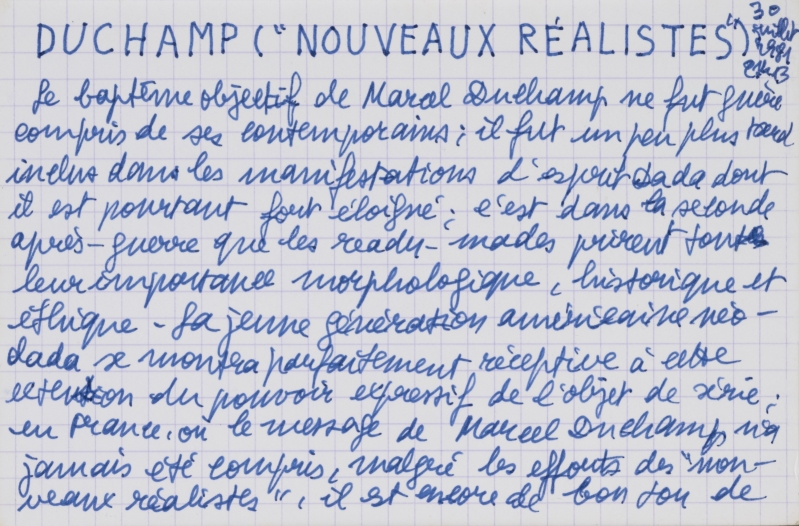 DUCHAMP ("NOUVEAUX RÉALISTES")
30
juillet
1981
Le baptême objectif de Marcel Duchamp ne fut guère
compris de ses contemporains ; il fut un peu plus tard
inclus dans les manifestations d'esprit dada dont
il est pourtant fort éloigné ; c'est dans la seconde
après-guerre que les ready-mades prirent toute
leur importance morphologique, historique et
éthique - La jeune génération américaine néo-
dada se montra parfaitement réceptive à cette
extension du pouvoir expressif de l'objet de série ;
en France, où le message de Marcel Duchamp n'a
jamais été compris, malgré les efforts des "nou-
veaux réalistes", il est encore de bon ton de